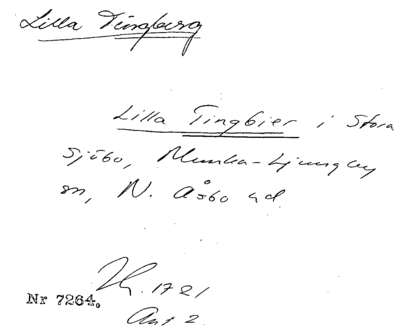 Lilla Tingberg
Lilla Tingbier i Stora
Sjöbo, Munka-Ljungby
sn, N. Åsbo hd.
1721
Nr 7264. Ant 2